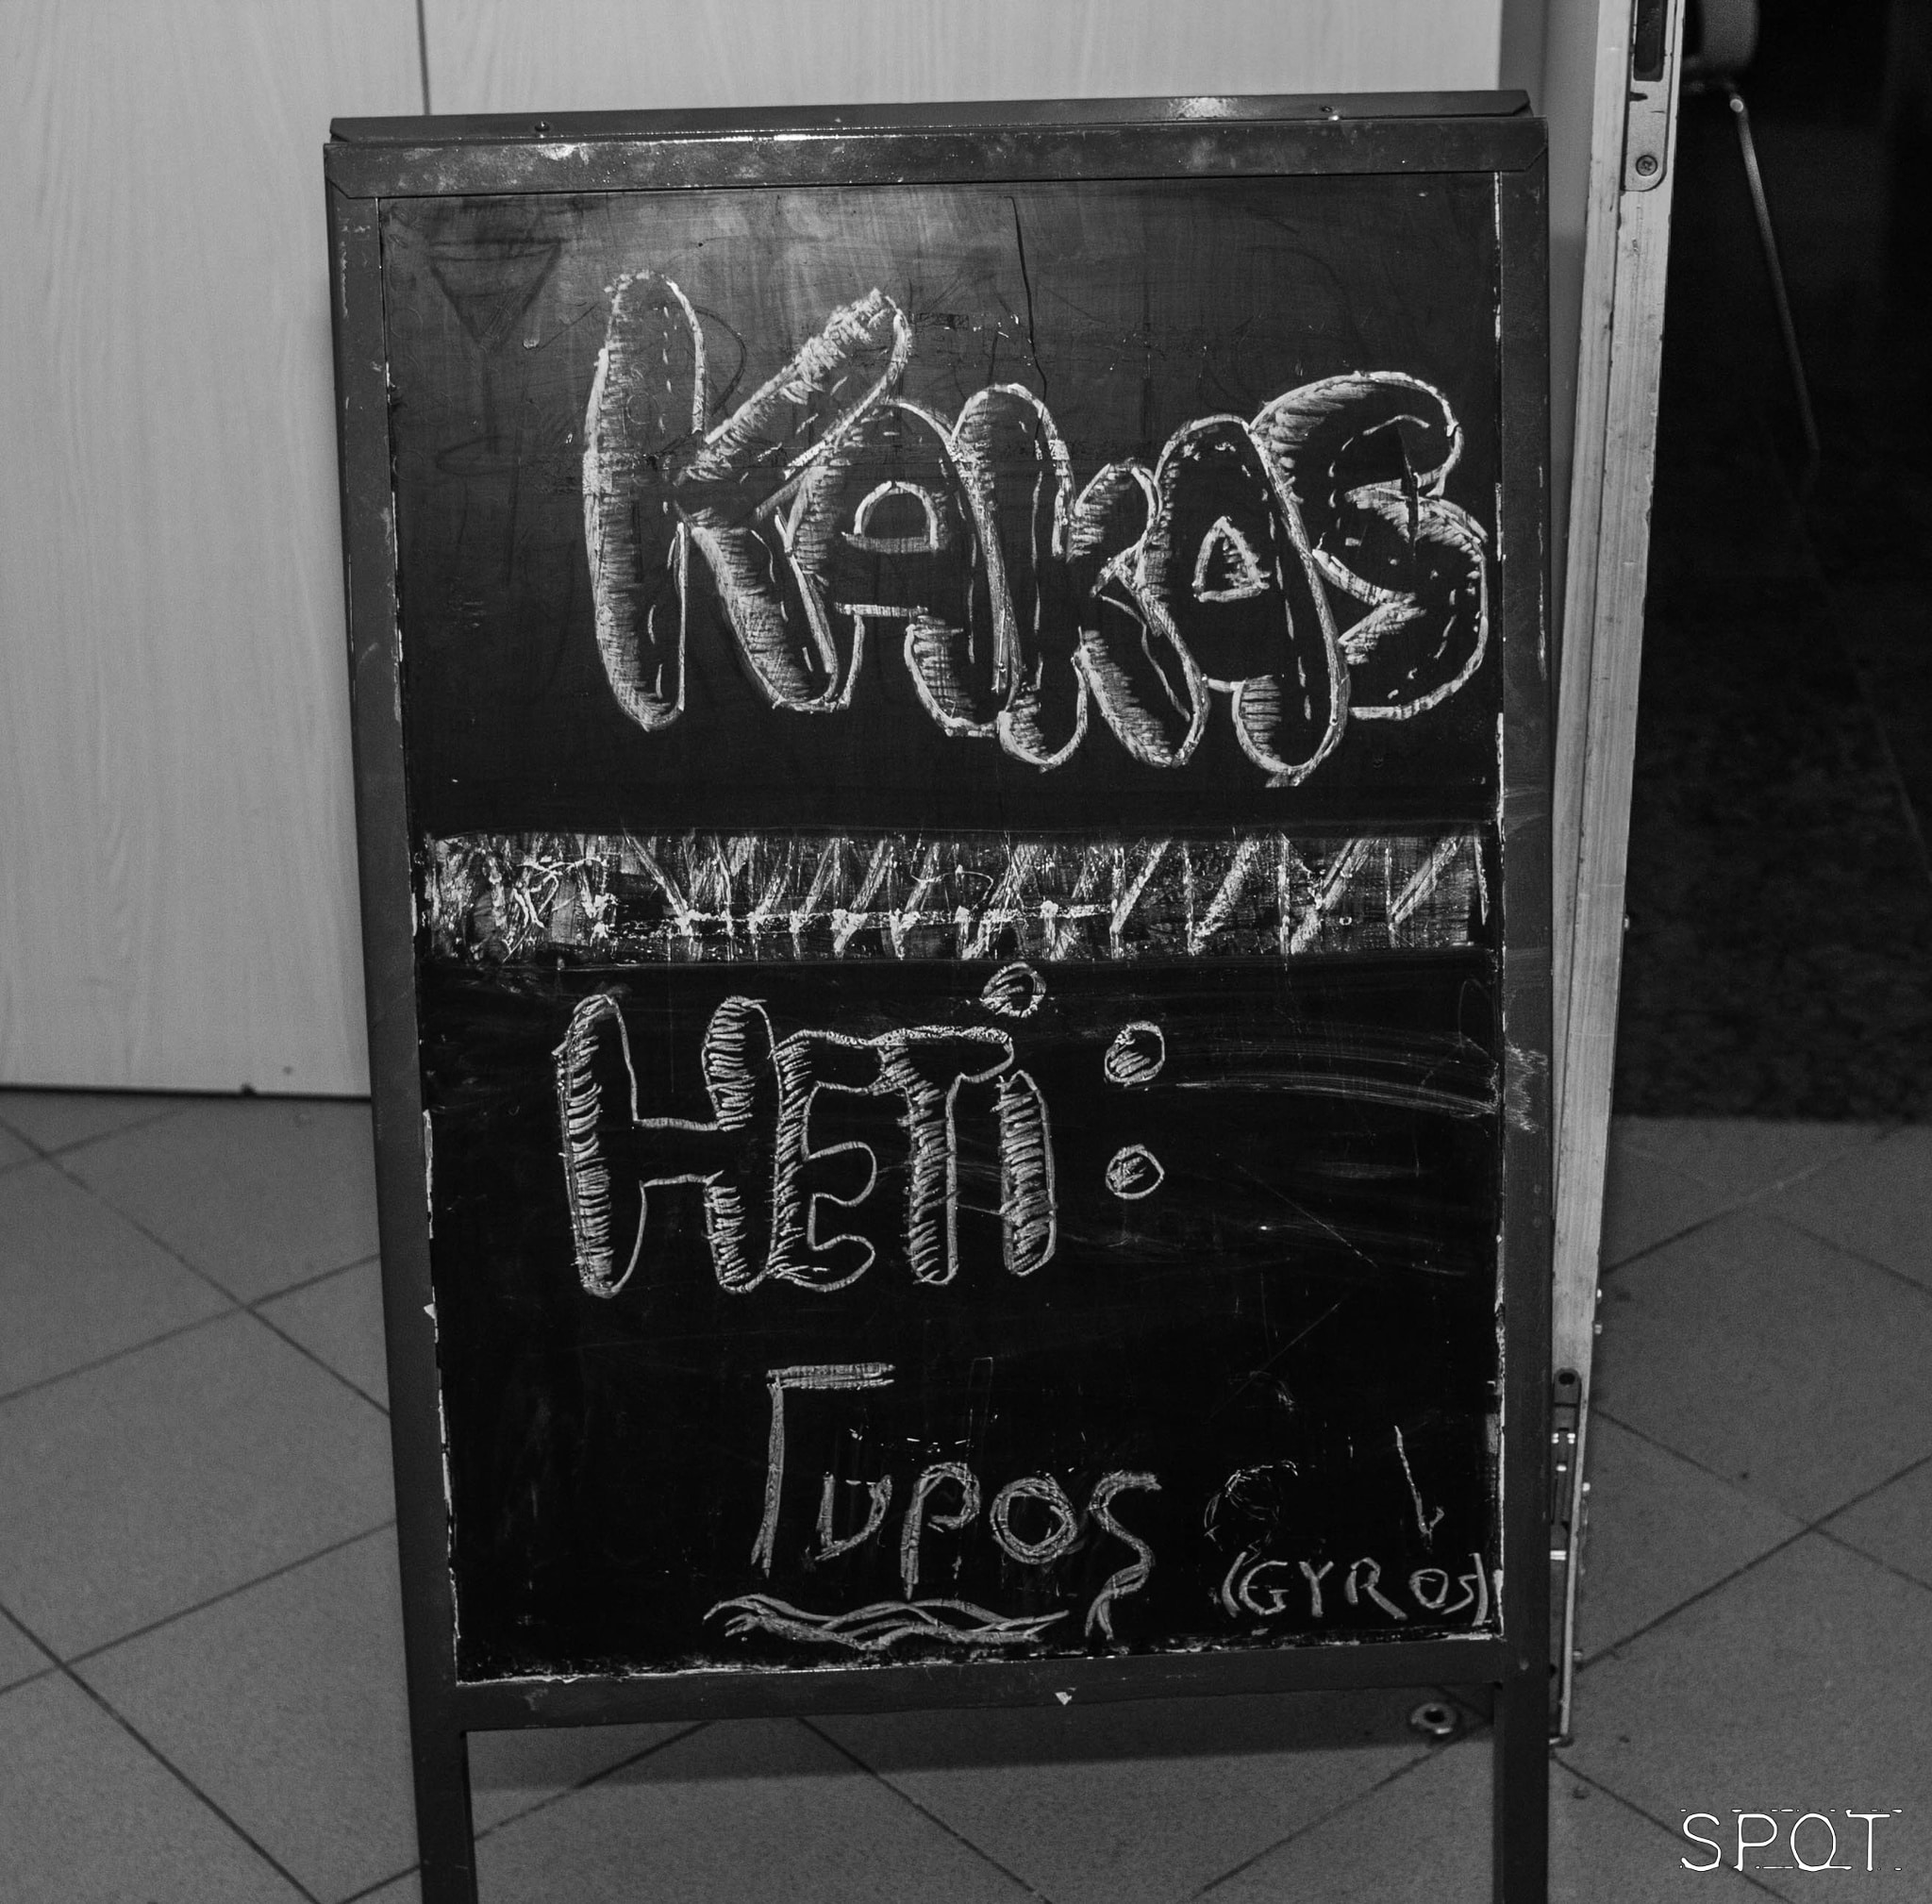 KAKAS
HETI:
Γυρος
(GYROS)
SPOT